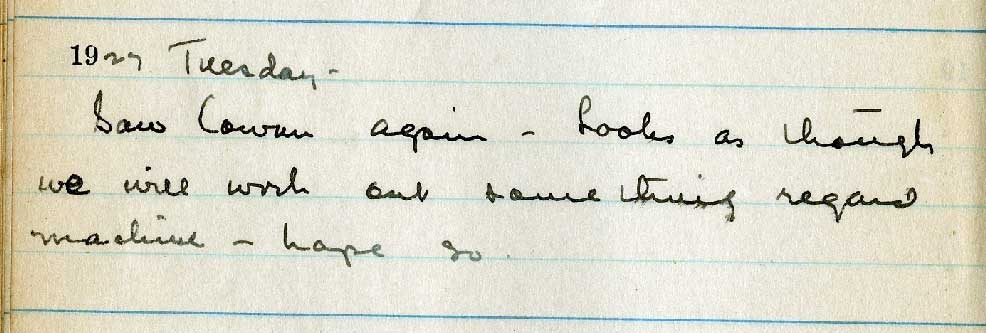 1927 Tuesday -
Saw Cowan again - Looks as though
we will work out something regard
machine - hope so.